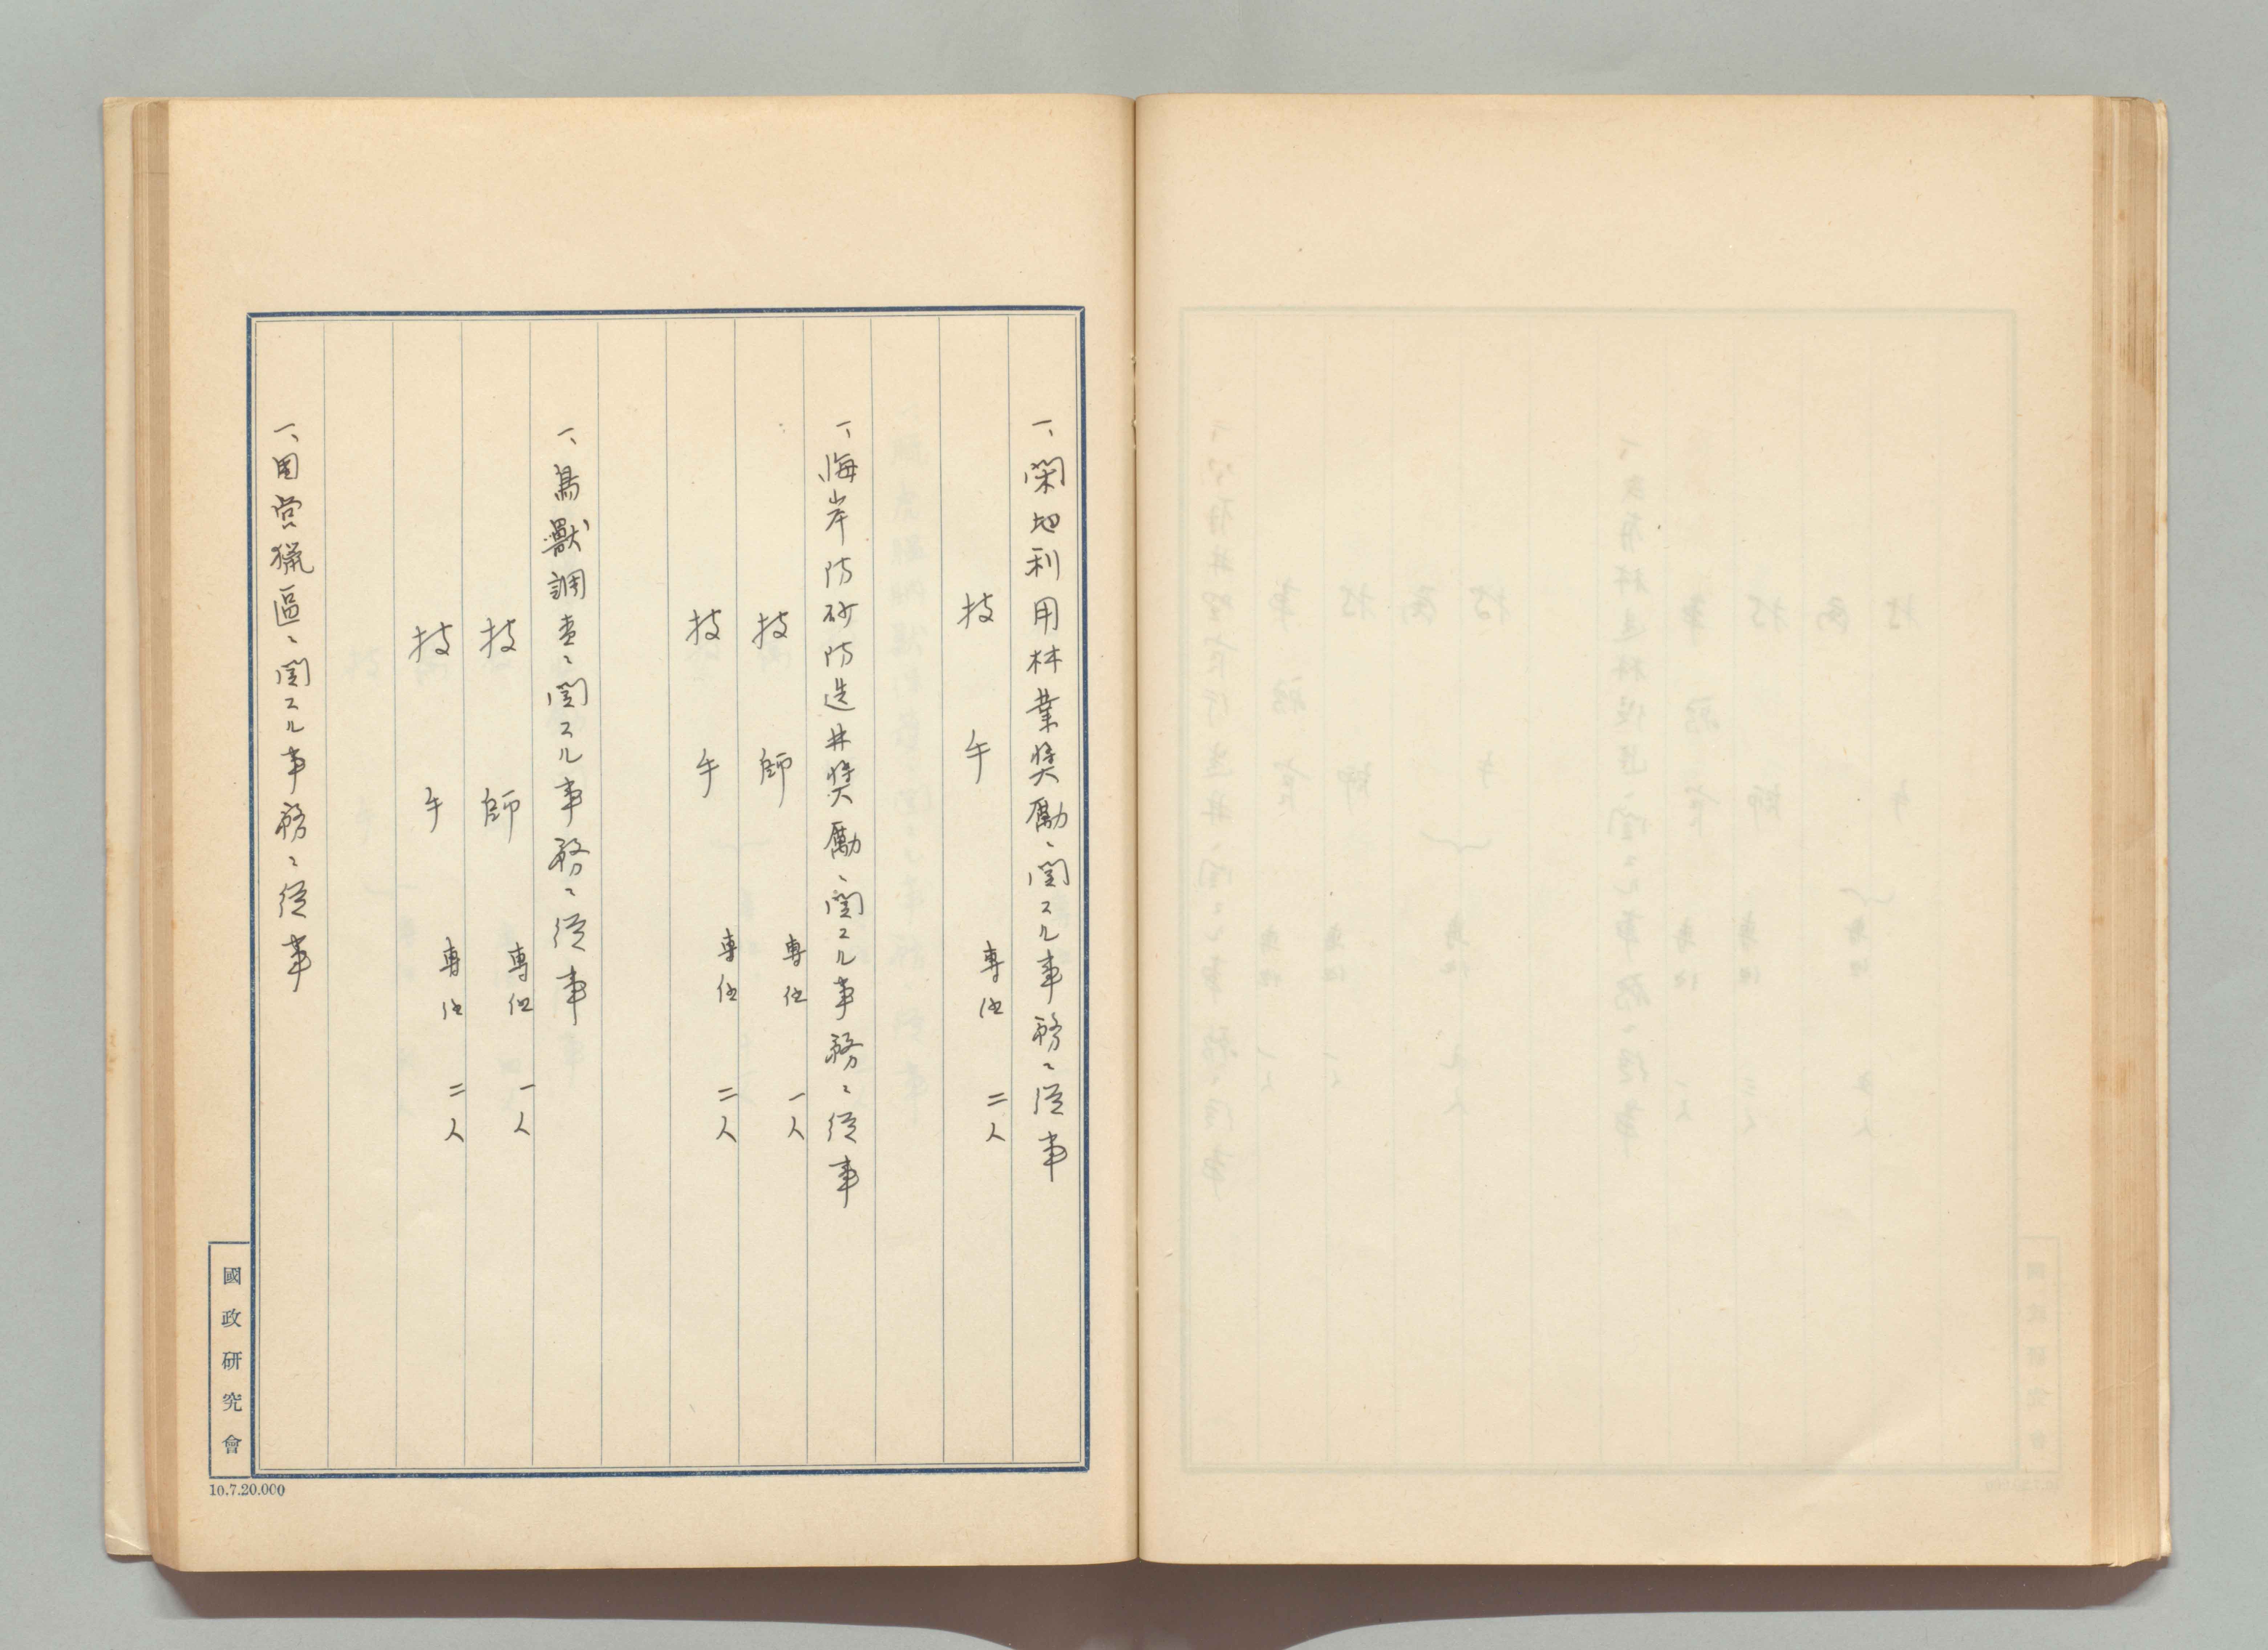 一、閑地利用林業奬勵ニ関スル事務ニ從事
技手 専任 二人
一、海岸防砂防造林奬勵ニ関スル事務ニ從事
技師 専任 一人
技手 専任 二人
一、鳥獸調査ニ関スル事務ニ從事
技師 専任 一人
技手 専任 二人
一、国営猟區ニ関スル事務ニ從事
國政研究會
10.7.20.000